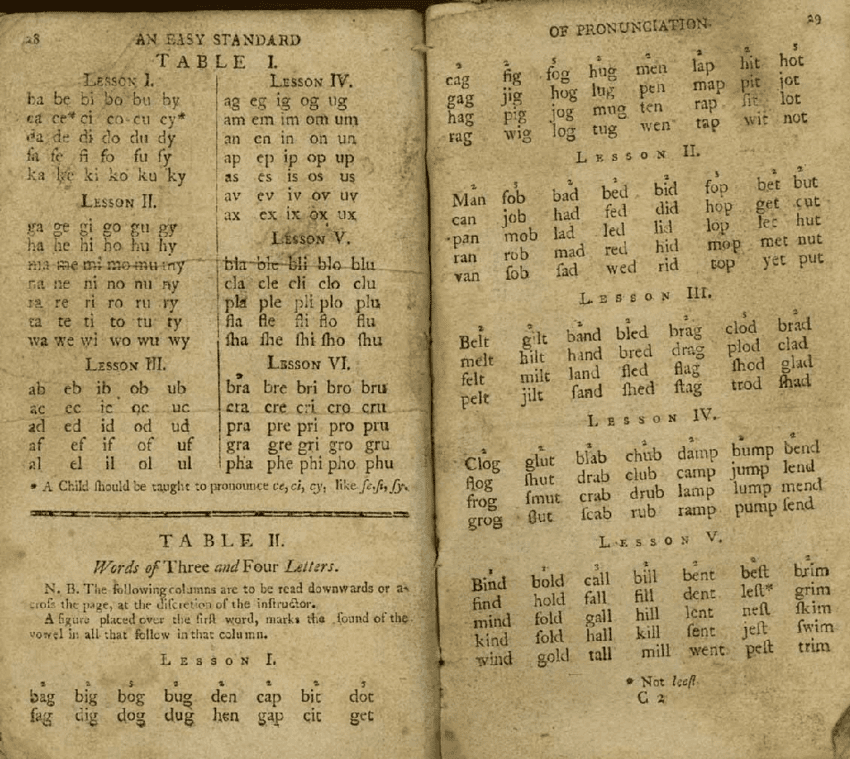 28
AN EASY STANDARD
TABLE I.
LESSON I.
ba be bi bo bu by
ca ce* ci co cu cy*
da de di do du dy
fa fe fi fo fu fy
ka ke ki ko ku ky
LESSON II.
ga ge gi go gu gy
ha he hi ho hu hy
ma me mi mo mu my
na ne ni no nu ny
ra re ri ro ru ry
ta te ti to tu ty
wa we wi wo wu wy
LESSON III.
ab eb ib ob ub
ac ec ic oc uc
ad ed id od ud
af ef if of uf
al el il ol ul
LESSON IV.
ag eg ig og ug
am em im om um
an en in on un
ap ep ip op up
as es is os us
av ev iv ov uv
ax ex ix ox ux
LESSON V.
bla ble bli blo blu
cla cle cli clo clu
pla ple pli plo plu
fla fle fli flo flu
ſha ſhe ſhi ſho ſhu
LESSON VI.
bra bre bri bro bru
cra cre cri cro cru
pra pre pri pro pru
gra gre gri gro gru
pha phe phi pho phu
* A Child ſhould be taught to pronounce ce, ci, cy, like ſe, ſi, ſy.
TABLE II.
Words of Three and Four Letters.
N. B. The following columns are to be read downwards or a-
croſs the page, at the diſcretion of the inſtructor.
A figure placed over the firſt word, marks the ſound of the
vowel in all that follow in that column.
LESSON I.
bag big bog bug den cap bit dot
fag dig dog dug hen gap cit get
OF PRONUNCIATION.
29
cag fig fog hug men lap hit hot
gag jig hog lug pen map pit jot
hag pig jog mug ten rap ſit lot
rag wig log tug wen tap wit not
LESSON II.
Man fob bad bed bid fop bet but
can job had fed did hop get cut
pan mob lad led lid lop let hut
ran rob mad red hid mop met nut
van ſob ſad wed rid top yet put
LESSON III.
Belt gilt band bled brag clod brad
melt hilt hand bred drag plod clad
felt milt land fled flag ſhod glad
pelt jilt ſand ſhed ſtag trod ſhad
LESSON IV.
Clog glut blab chub damp bump bend
flog ſhut drab club camp jump lend
frog ſmut crab drub lamp lump mend
grog ſlut ſcab rub ramp pump ſend
LESSON V.
Bind bold call bill bent beſt brim
find hold fall fill dent leſt* grim
mind fold gall hill lent neſt ſkim
kind ſold hall kill ſent jeſt ſwim
wind gold tall mill went peſt trim
* Not leeſt.
C 2